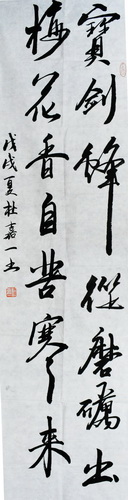 寶劍鋒從磨礪出
梅花香自苦寒來
戊戌夏杜嘉一書